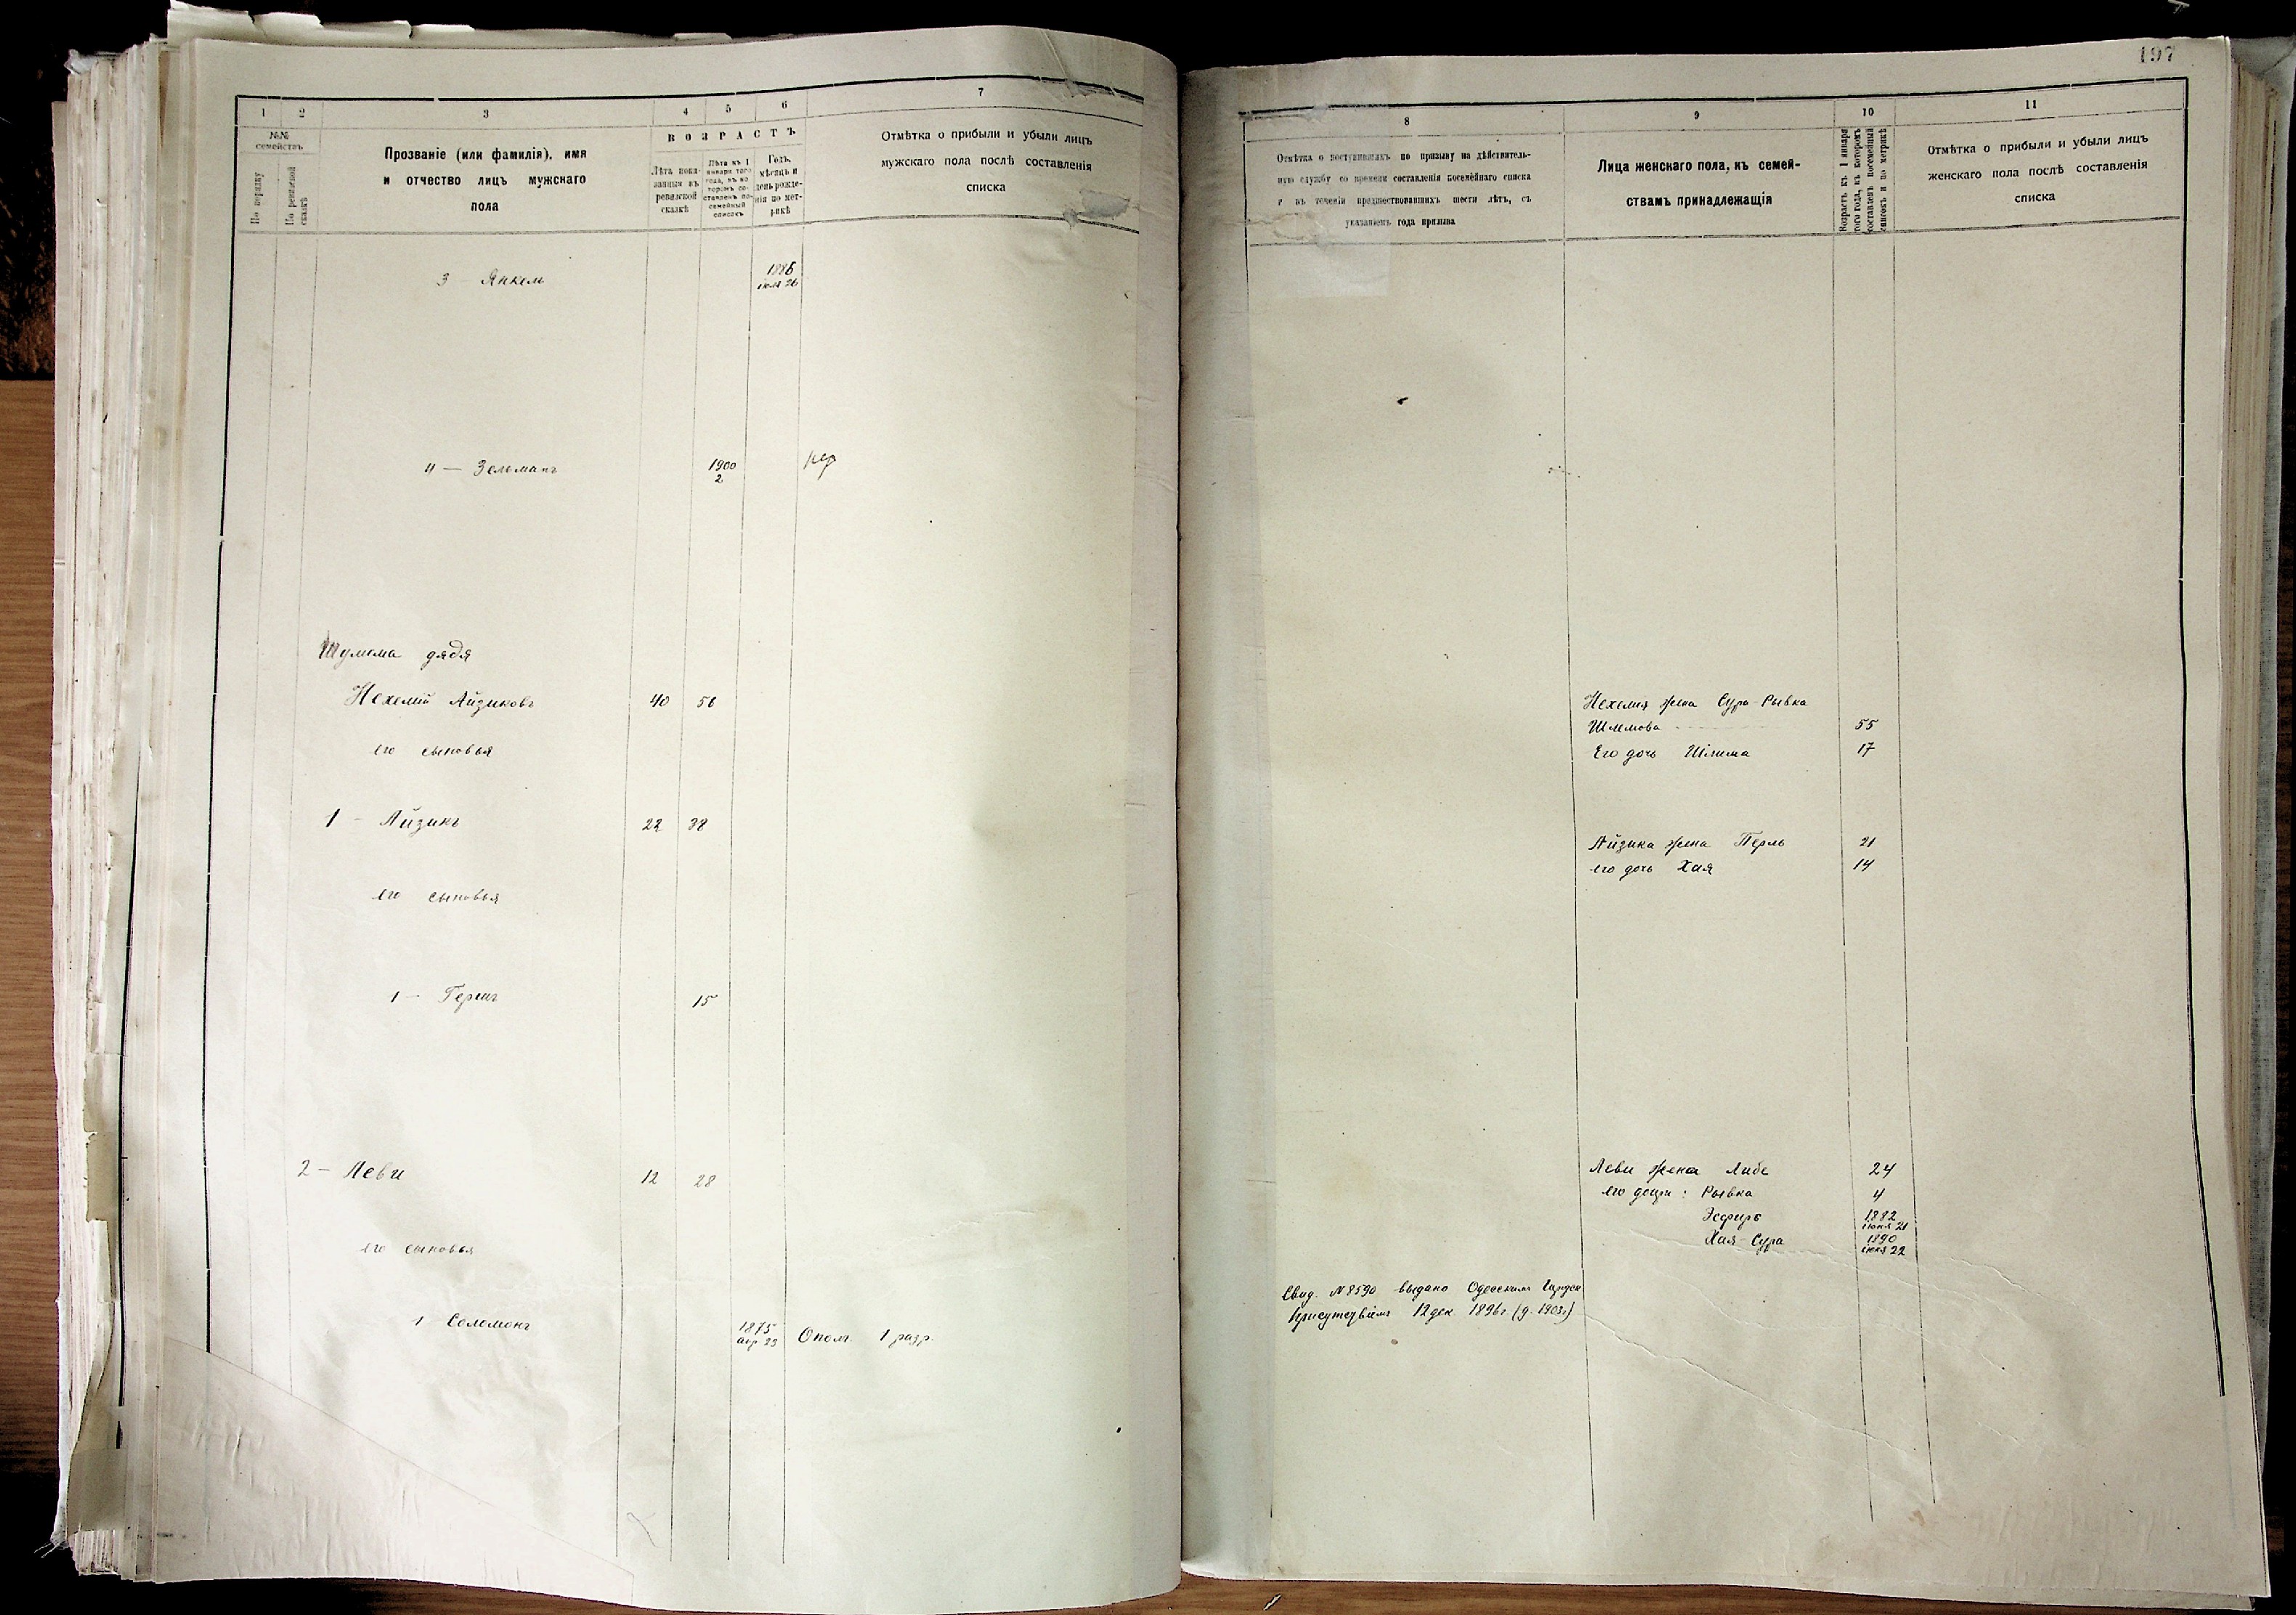 197
1 2 3 4 5 6 7
№№ семействъ
По порядку
По ревизской сказкѣ
Прозваніе (или фамилія), имя
и отчество лицъ мужскаго
пола
ВОЗРАСТЪ
Лѣта пока-
занныя въ
ревизской
сказкѣ
Лѣта къ 1
января того
года, въ ко
торомъ со-
ставленъ по-
семейный
списокъ
Годъ,
мѣсяцъ и
день рожде-
нія по мет-
рикѣ
Отмѣтка о прибыли и убыли лицъ
мужскаго пола послѣ составленія
списка
3 Янкель 1886
іюля 26
4 — Зельманъ 1900
2
Шулема дядя
Нехемій Айзиковъ 40 56
его сыновья
1 — Айзикъ 22 38
его сыновья
1 — Гершъ 15
2 — Леви 12 28
его сыновья
1 Соломонъ 1875
апр 23 Ополч. 1 разр.
8 9 10 11
Отмѣтка о поступившихъ по призыву на дѣйствитель-
ную службу со времени составленія посемейнаго списка
и въ теченіи предшествовавшихъ шести лѣтъ, съ
указаніемъ года призыва
Лица женскаго пола, къ семей-
ствамъ принадлежащія
Возрастъ къ 1 января
того года, въ которомъ
составленъ посемейный
списокъ и по метрикѣ
Отмѣтка о прибыли и убыли лицъ
женскаго пола послѣ составленія
списка
Нехемія жена Сура-Рывка
Шлемова 55
Его дочь 17
Айзика жена Перль 21
его дочь Хая 14
Леви жена Либе 24
его дочри: Рывка 4
Эсфирь 1882
іюня 21
Хая-Сура 1890
іюля 22
Свид. № 8590 выдано Одесскимъ Городск
Присутствіемъ 12 дек 1896 г. (д. 1903 г)